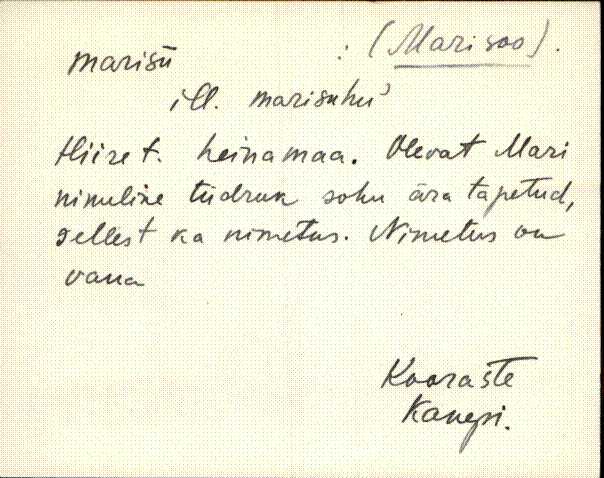 marisū : (Marisoo).
ill. marisuhu'
Hiire t. heinamaa. Olevat Mari
nimeline tüdruk sohu ära tapetud,
sellest ka nimetus. Nimetus on
vana
Kooraste
Kanepi.